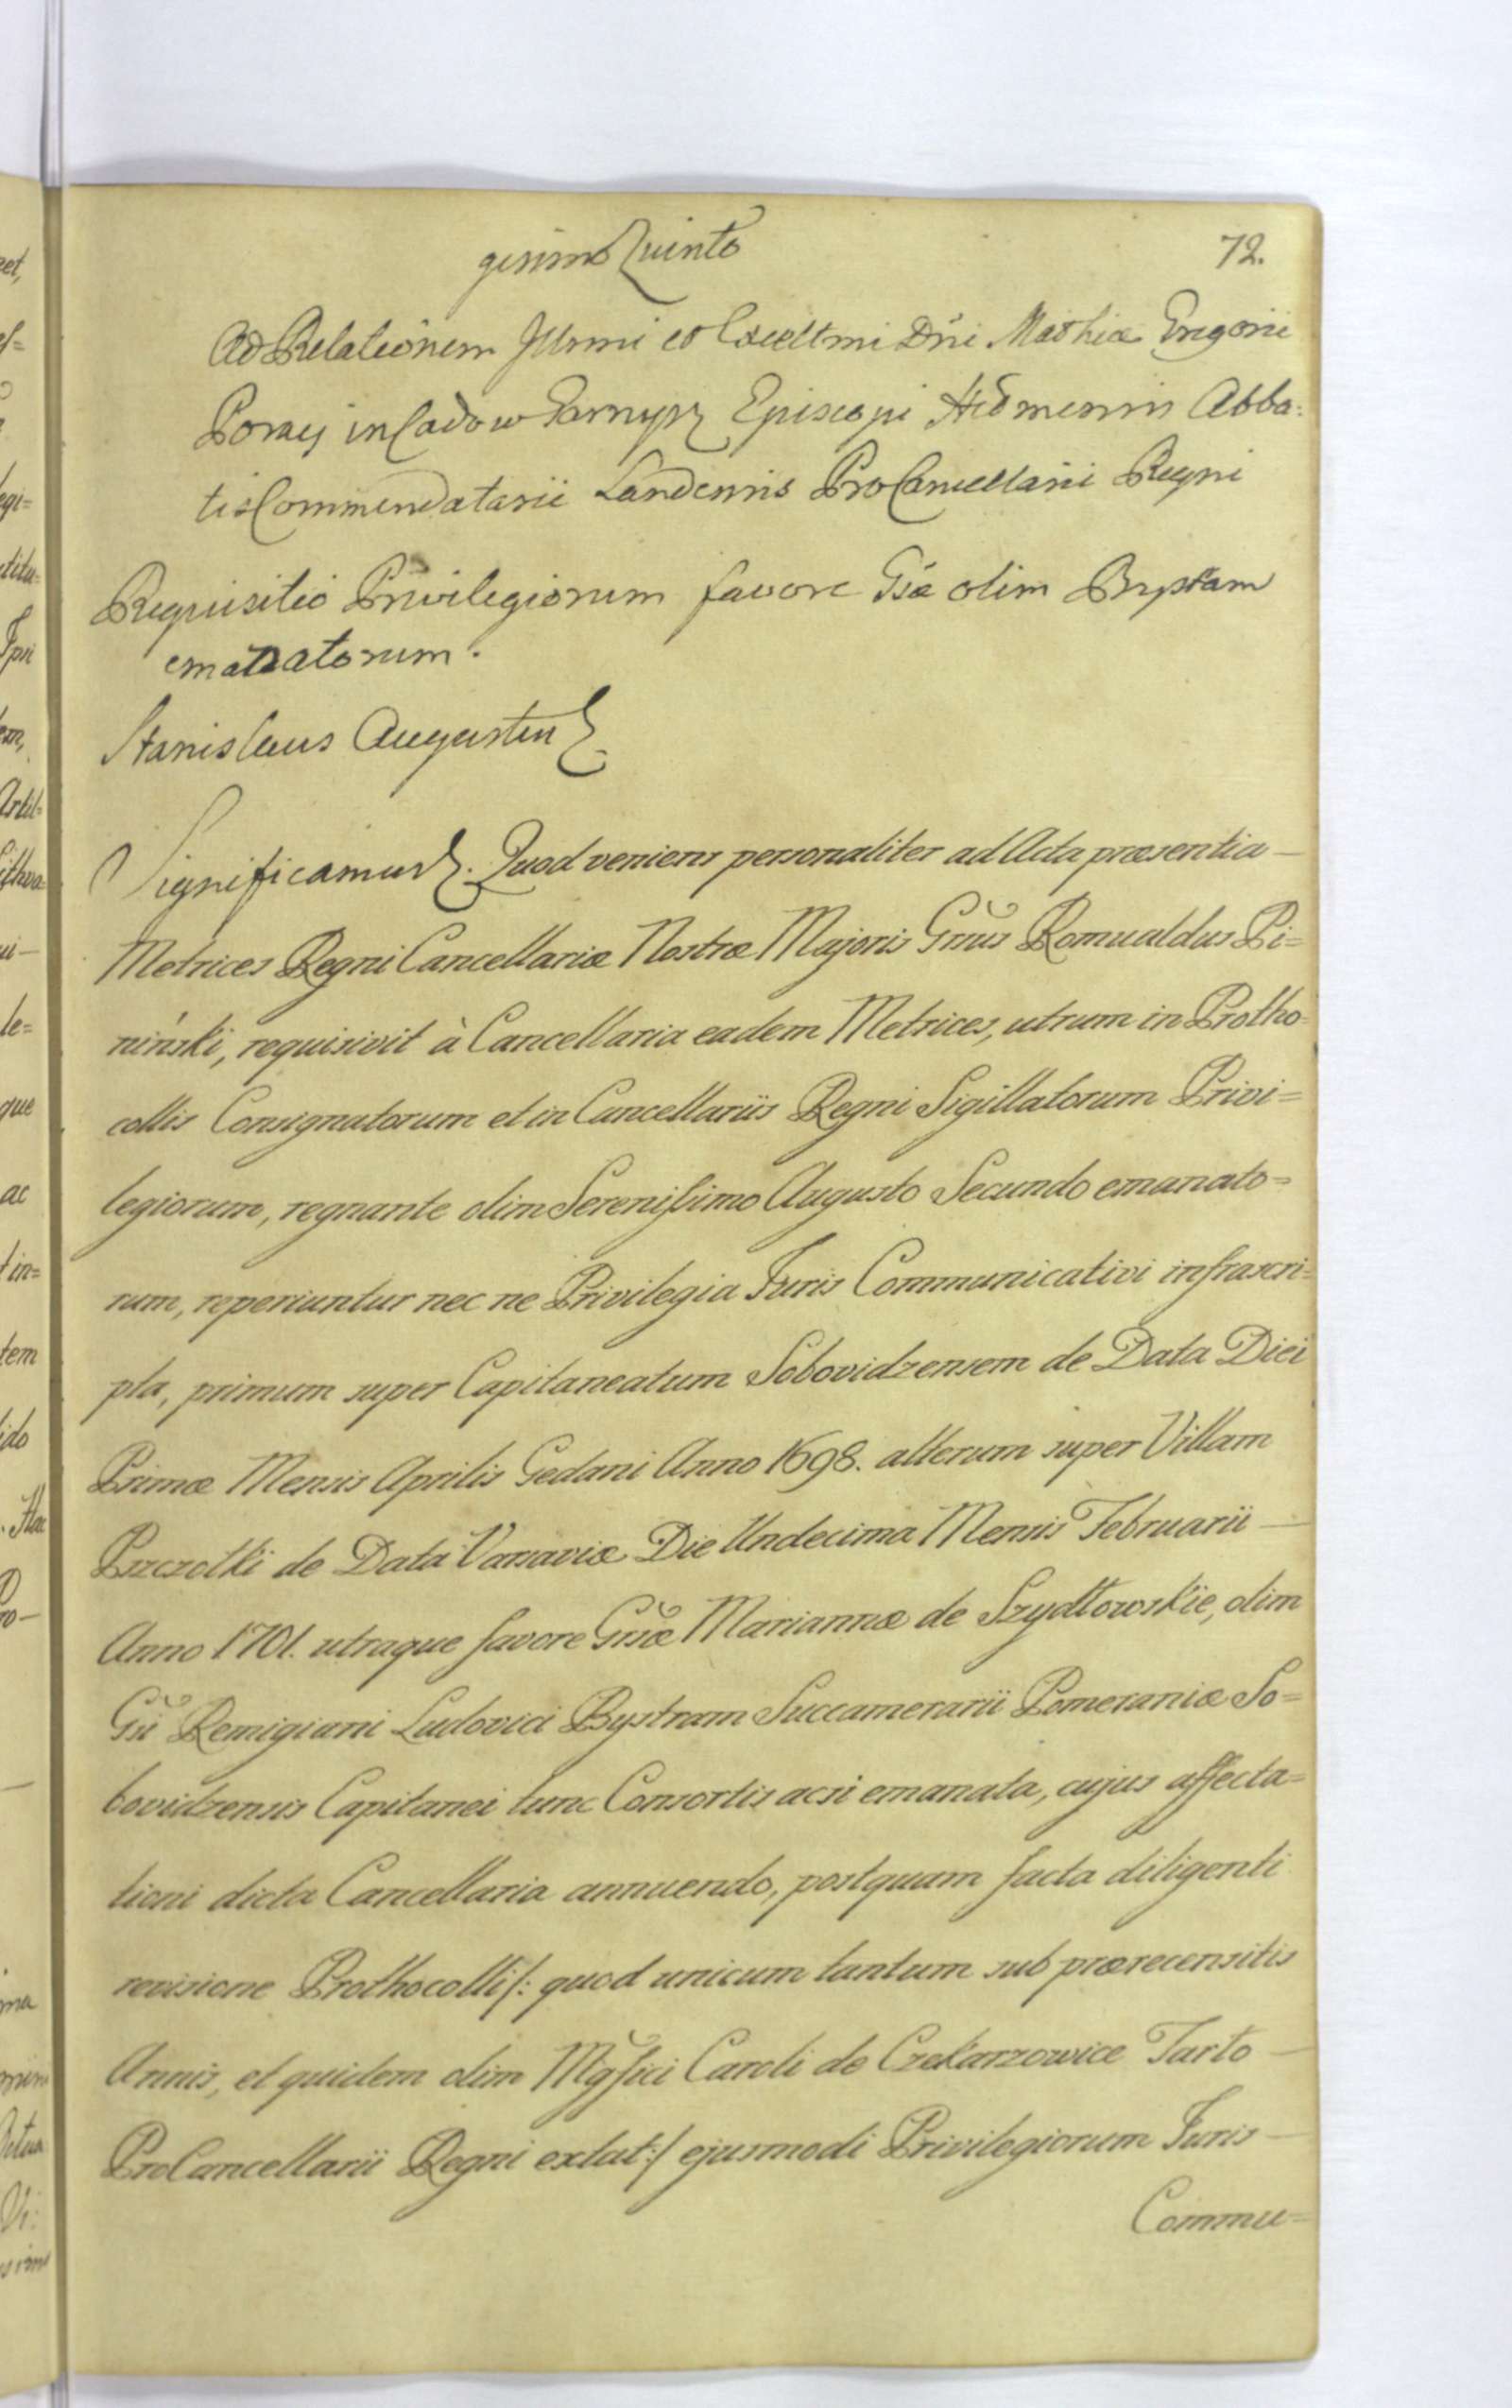 gesimo Quinto
72.
Ad Relationem Illmi et Excellmi Dni Mathiæ Gregorii
Poray in Ladow Garnysz Episcopi Abba:
tis Commendatarii Landensis ProCancellarii Regni
Requisitio Privilegiorum favore Gsæ olim Bystram
emanatorum.
Stanislaus Augustus
Significamus. Quod veniens personaliter ad Acta præsentia —
Metrices Regni Cancellariæ Nostræ Majoris Gnus Romualdus Pi=
niński, requisivit à Cancellaria eadem Metrices, utrum in Protho
collis Consignatorum et in Cancellariis Regni Sigillatorum Privi=
legiorum, regnante olim Serenissimo Augusto Secundo emanato=
rum, reperiuntur nec ne Privilegia Juris Communicativi infrascri=
pta, primum super Capitaneatum Sobovidzensem de Data Diei
Primæ Mensis Aprilis Gedani Anno 1698. alterum super Villam
Pszczołki de Data Varsaviæ Die Undecima Mensis Februarii —
Anno 1701. utraque favore Gnsæ Mariannæ de Szydłowskie, olim
Gsi Remigiani Ludovici Bystram Succamerarii Pomeraniæ So=
bovidzensis Capitanei tunc Consortis acsi emanata, cujus affecta=
tioni dicta Cancellaria annuendo, postquam facta diligenti
revisione Prothocolli /: quod unicum tantum sub prærecensitis
Annis, et quidem olim Mgfici Caroli de Czekarzowice Tarło —
ProCancellarii Regni extat :/ ejusmodi Privilegiorum Juris —
Commu=